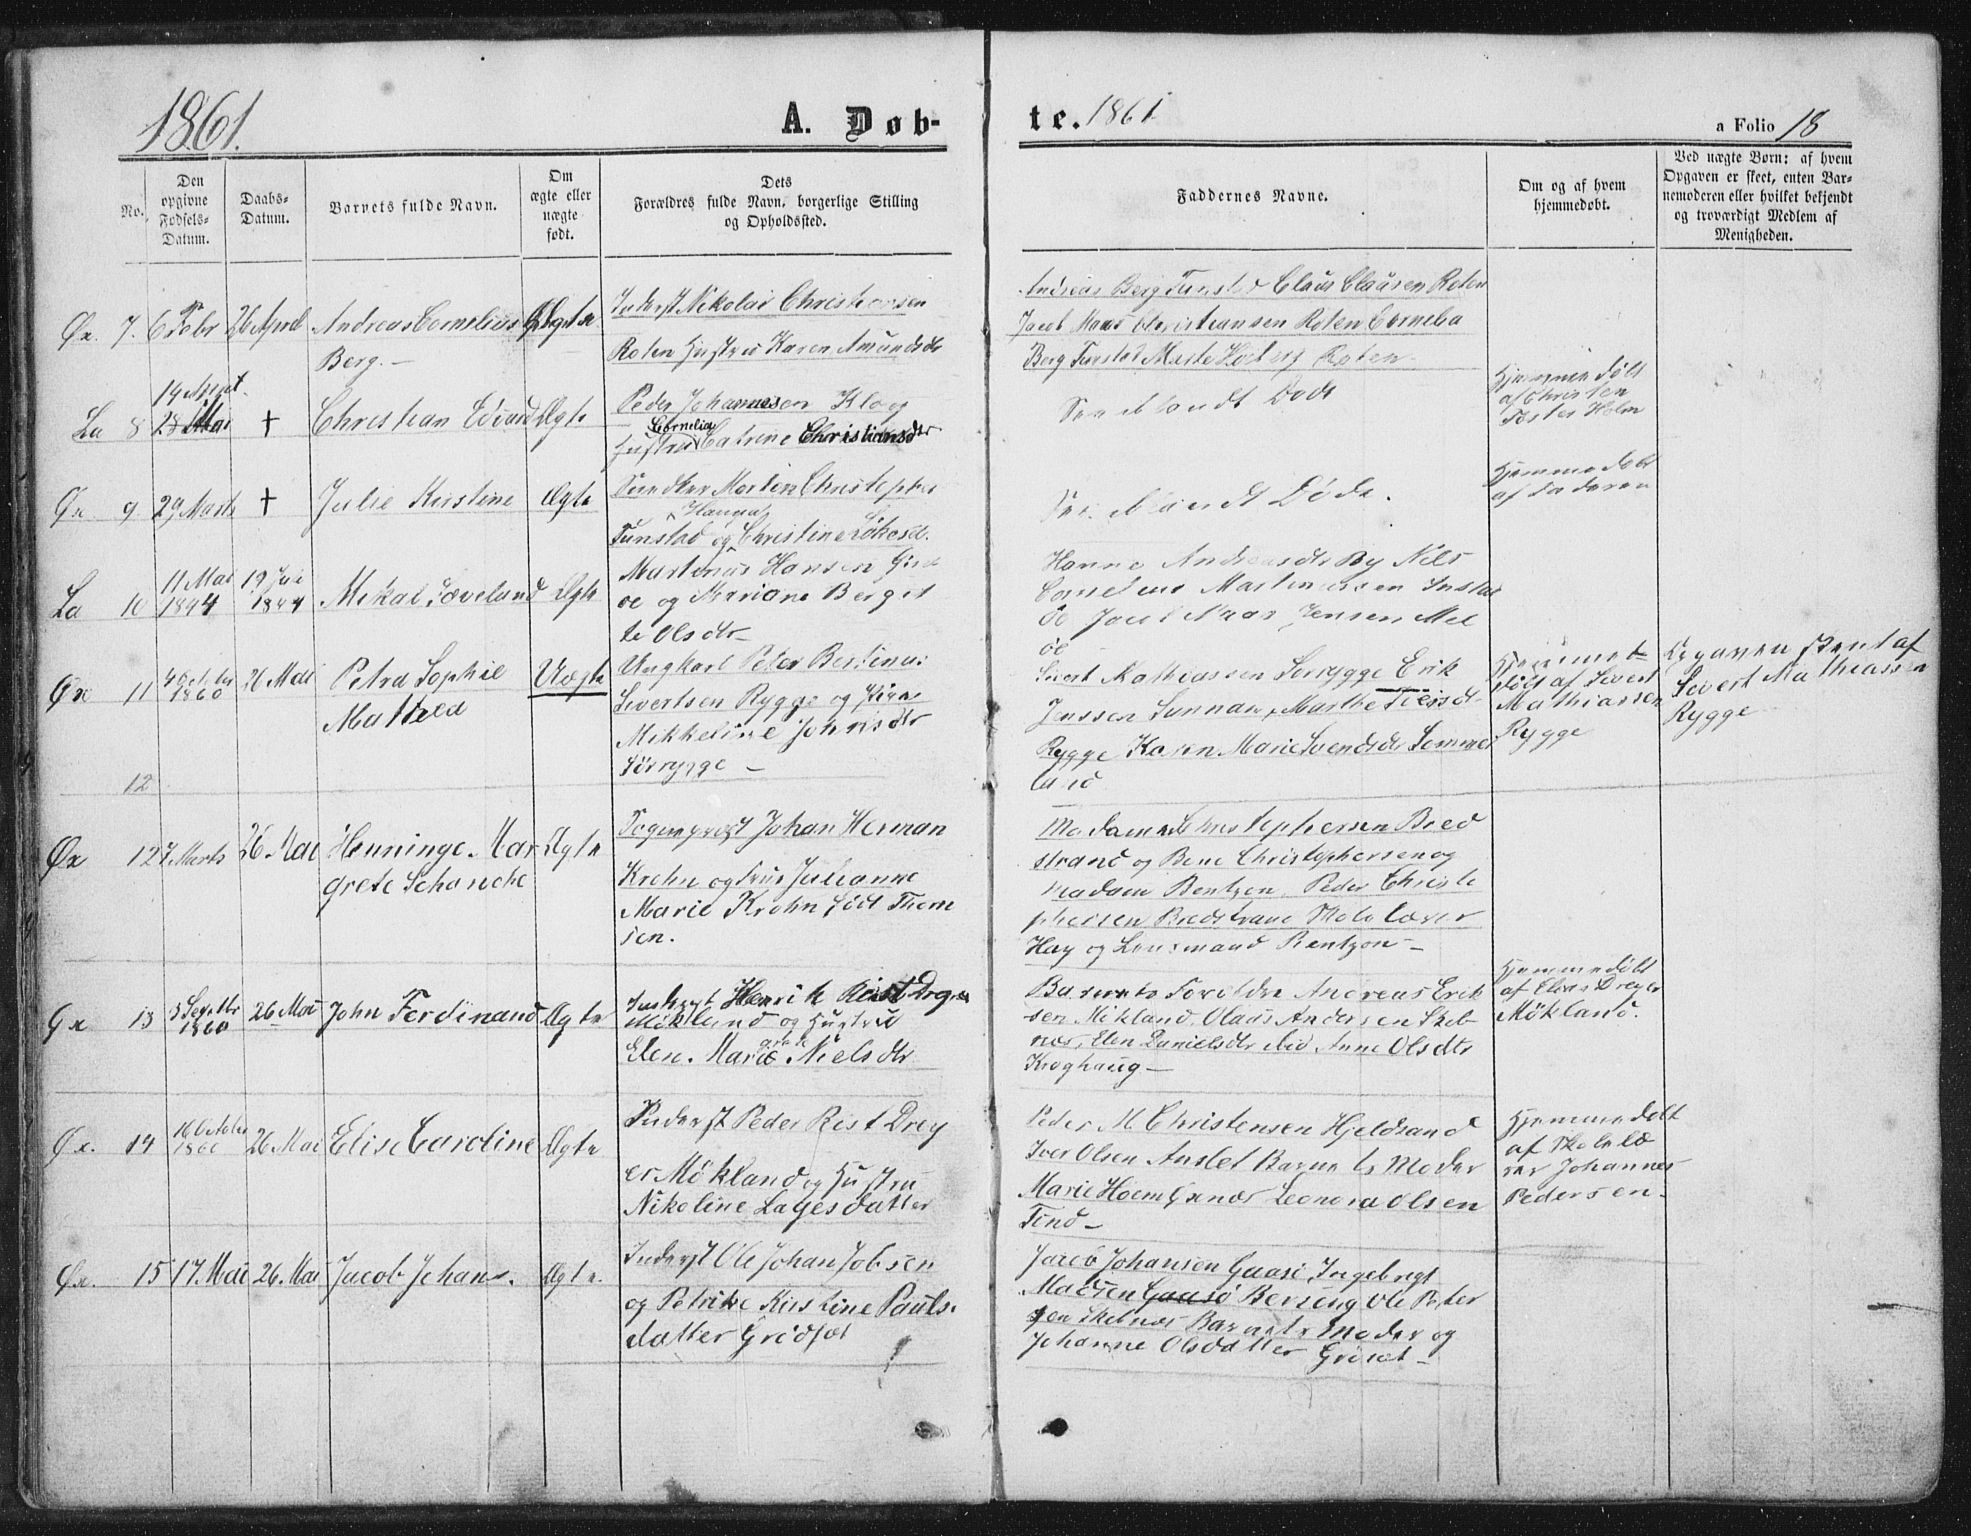 1861.
A. Døb-
te. 1861
a Folio 18
No.
Den opgivne Fødsels-Datum.
Daabs-Datum.
Barnets fulde Navn.
Om ægte eller uægte født.
Dets Forældres fulde Navn, borgerlige Stilling og Opholdssted.
Faddernes Navne.
Om og af hvem hjemmedøbt.
Ved uægte Børn: af hvem Opgaven er skeet, enten Barnemoderen eller hvilket bekjendt og troværdigt Medlem af Menigheden.
Øx. 7. 6 Febr 26 April Andreas Cornelius Ægte
Berg.-
Inderst Nikolai Christiansen
Roten Hustru Karen Amundsdr
Andreas Berg Tunstad Claus Clausen Roten
Jacob Maas Christiansen Roten Cornelia
Berg Tunstad Roten
La 8 14 August + Christian Edvard Ægte
28 Mai
Peder Johannesen
Cornelia
Hustru Catrine Christiansdr
Døde
Hjemmedøbt
af Christen
Holm
Øx 9 29 Marts + Julie Kirstine Ægte
Morten Christopher
Hanna
Tunstad og Christine
Døde.
Hjemmedøbt
af Faderen
La 10 11 Mai 19 Juli Mikal Ægte
1844 1844
Martinus Hansen
og Mariane Berget
te Olsdr
Hanne Andreasdr By Nils
Cornelius
Jacob Maas Jensen Mel
øe
Øx 11 4 October 26 Mai Petra Sophie Uægte
1860
Mathea
Ungkarl Peter Bertinus
Sivertsen Rygge og Pige
Mikkeline Johnsdr
Sørrygge -
Sivert Mathiassen Sørrygge Erik
Jenssen Sunnan, Marthe
Rygge Karen Marie Svendsdr Sommer
land
Hjemmedøbt af Sivert
Mathiassen
Rygge
Opgaven skeet af
Sivert Mathiassen
Rygge
12
Øx 12 7 Marts 26 Mai Henninge Mar Ægte
grete Schanche
Johan Herman
Krohn og Frue Julianne
Marie Krohn født Thom
sen.
Madame Christophersen Bred
strand og Christophersen og
Madam Bentzen, Peder Christo
phersen Bredstrand Skolelærer
Hay og Lensmand Bentzon -
Øx 13 3 Septbr 26 Mai John Ferdinand Ægte
1860
Henrik Rist Dreyer
Mökland og Hustru
Elen. Marie Nielsdr
Barnets Forældre Andreas Erik
sen Mökland, Olaus Andersen Skeb
næs, Elen Danielsdr Anne Olsdtr
Kroghaug -
Hjemmedøbt
af Elias Dreyer
Mökland.
Øx. 14 16 October 26 Mai Elise Caroline Ægte
1860
Inderst Peder Rist Drey
er Mökland og Hustru
Nikoline Lagesdatter
Peder M Christensen Hjeldsand
Iver Olsen Anstet Barnets Moder
Marie Hoem Leonora Olsen
Tind -
Hjemmedøbt
af Skolelæ
rer Johannes
Pedersen.
Øx. 15 17. Mai 26. Mai Jacob Johan. Ægte.
Inderst Ole Johan Jobsen
og Petrike Kirstine Pauls-
datter
Jacob Johansen Gaasø, Ingebrigt
Madsen Gaasø Berseng Ole Peter
sen Skebnæs Barnets Moder og
Johanne Olsdatter